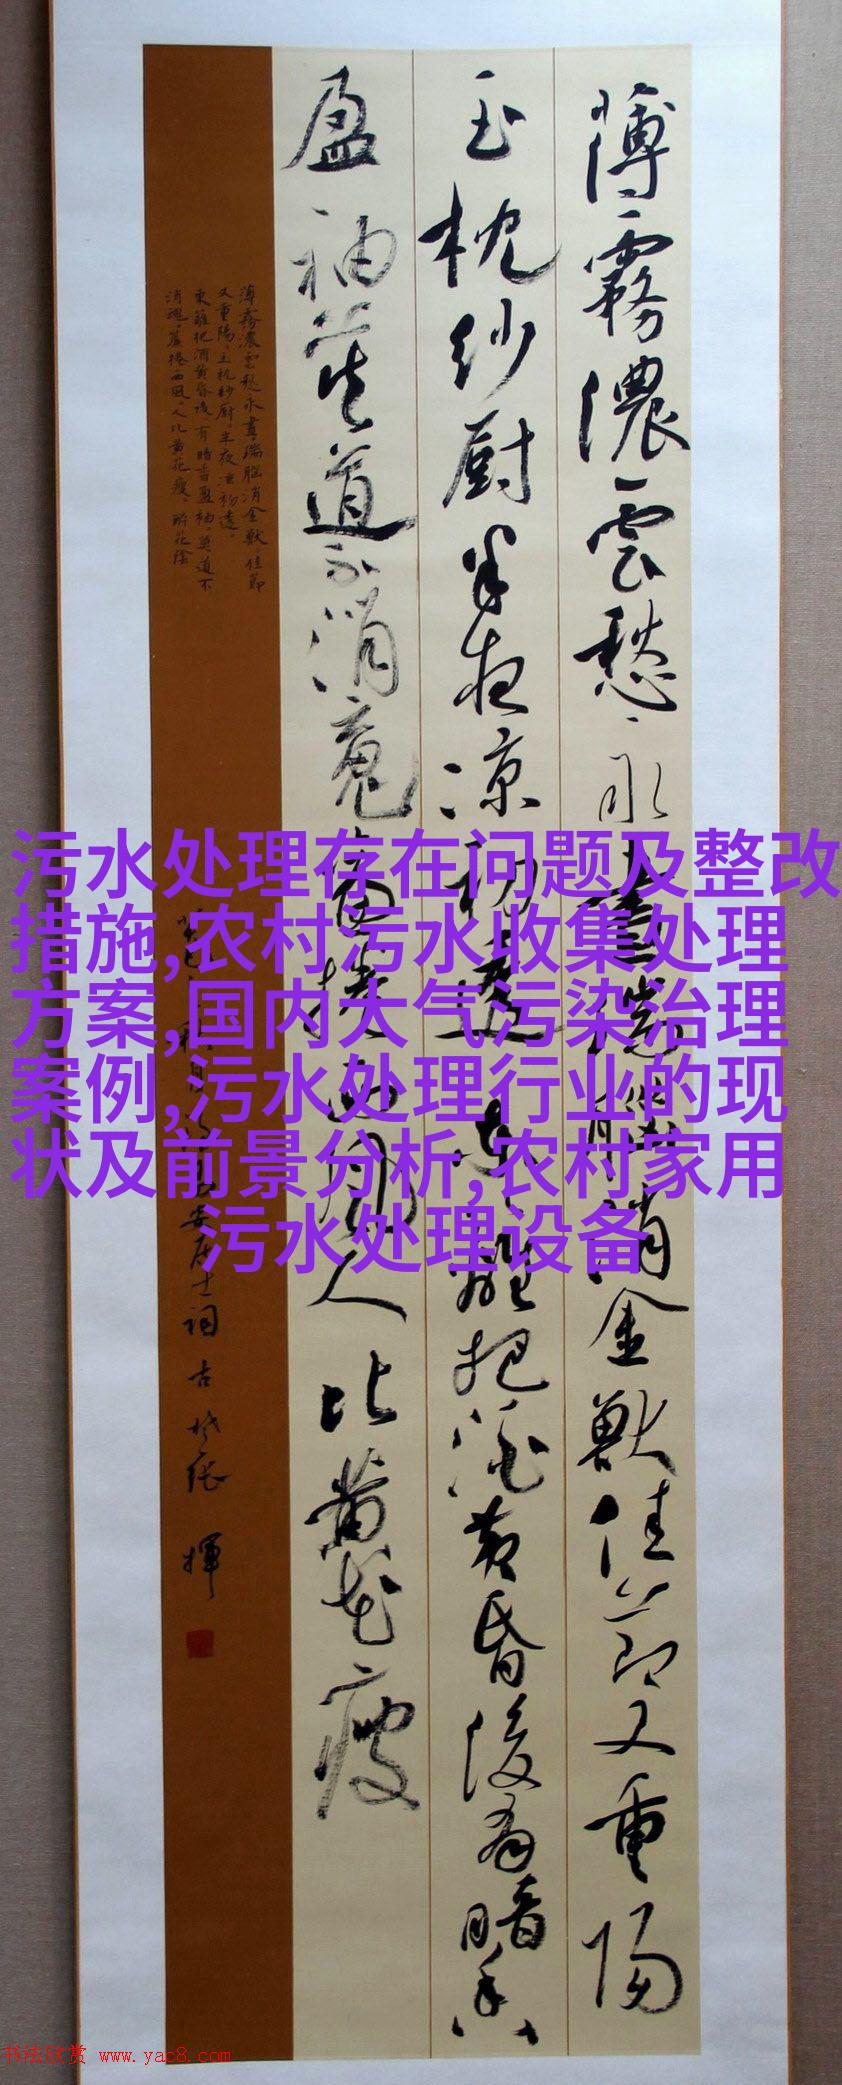 薄霧濃雲愁永晝瑞腦消金獸佳節又重陽
玉枕紗厨半夜凉初透東籬把酒黄昏後有暗香
盈袖莫道不消魂簾捲西風人比黄花瘦
薄霧濃雲愁永晝瑞腦消金獸佳節
又重陽玉枕紗厨半夜凉初透
東籬把酒黄昏後有暗香盈袖莫道不
消魂簾捲西風人比黄花瘦醉花陰
安居士詞 古 揮
污水处理存在问题及整改
措施,农村污水收集处理
方案,国内大气污染治理
案例,污水处理行业的现
状及前景分析,农村家用
污水处理设备
书法欣赏 www.yac8.com